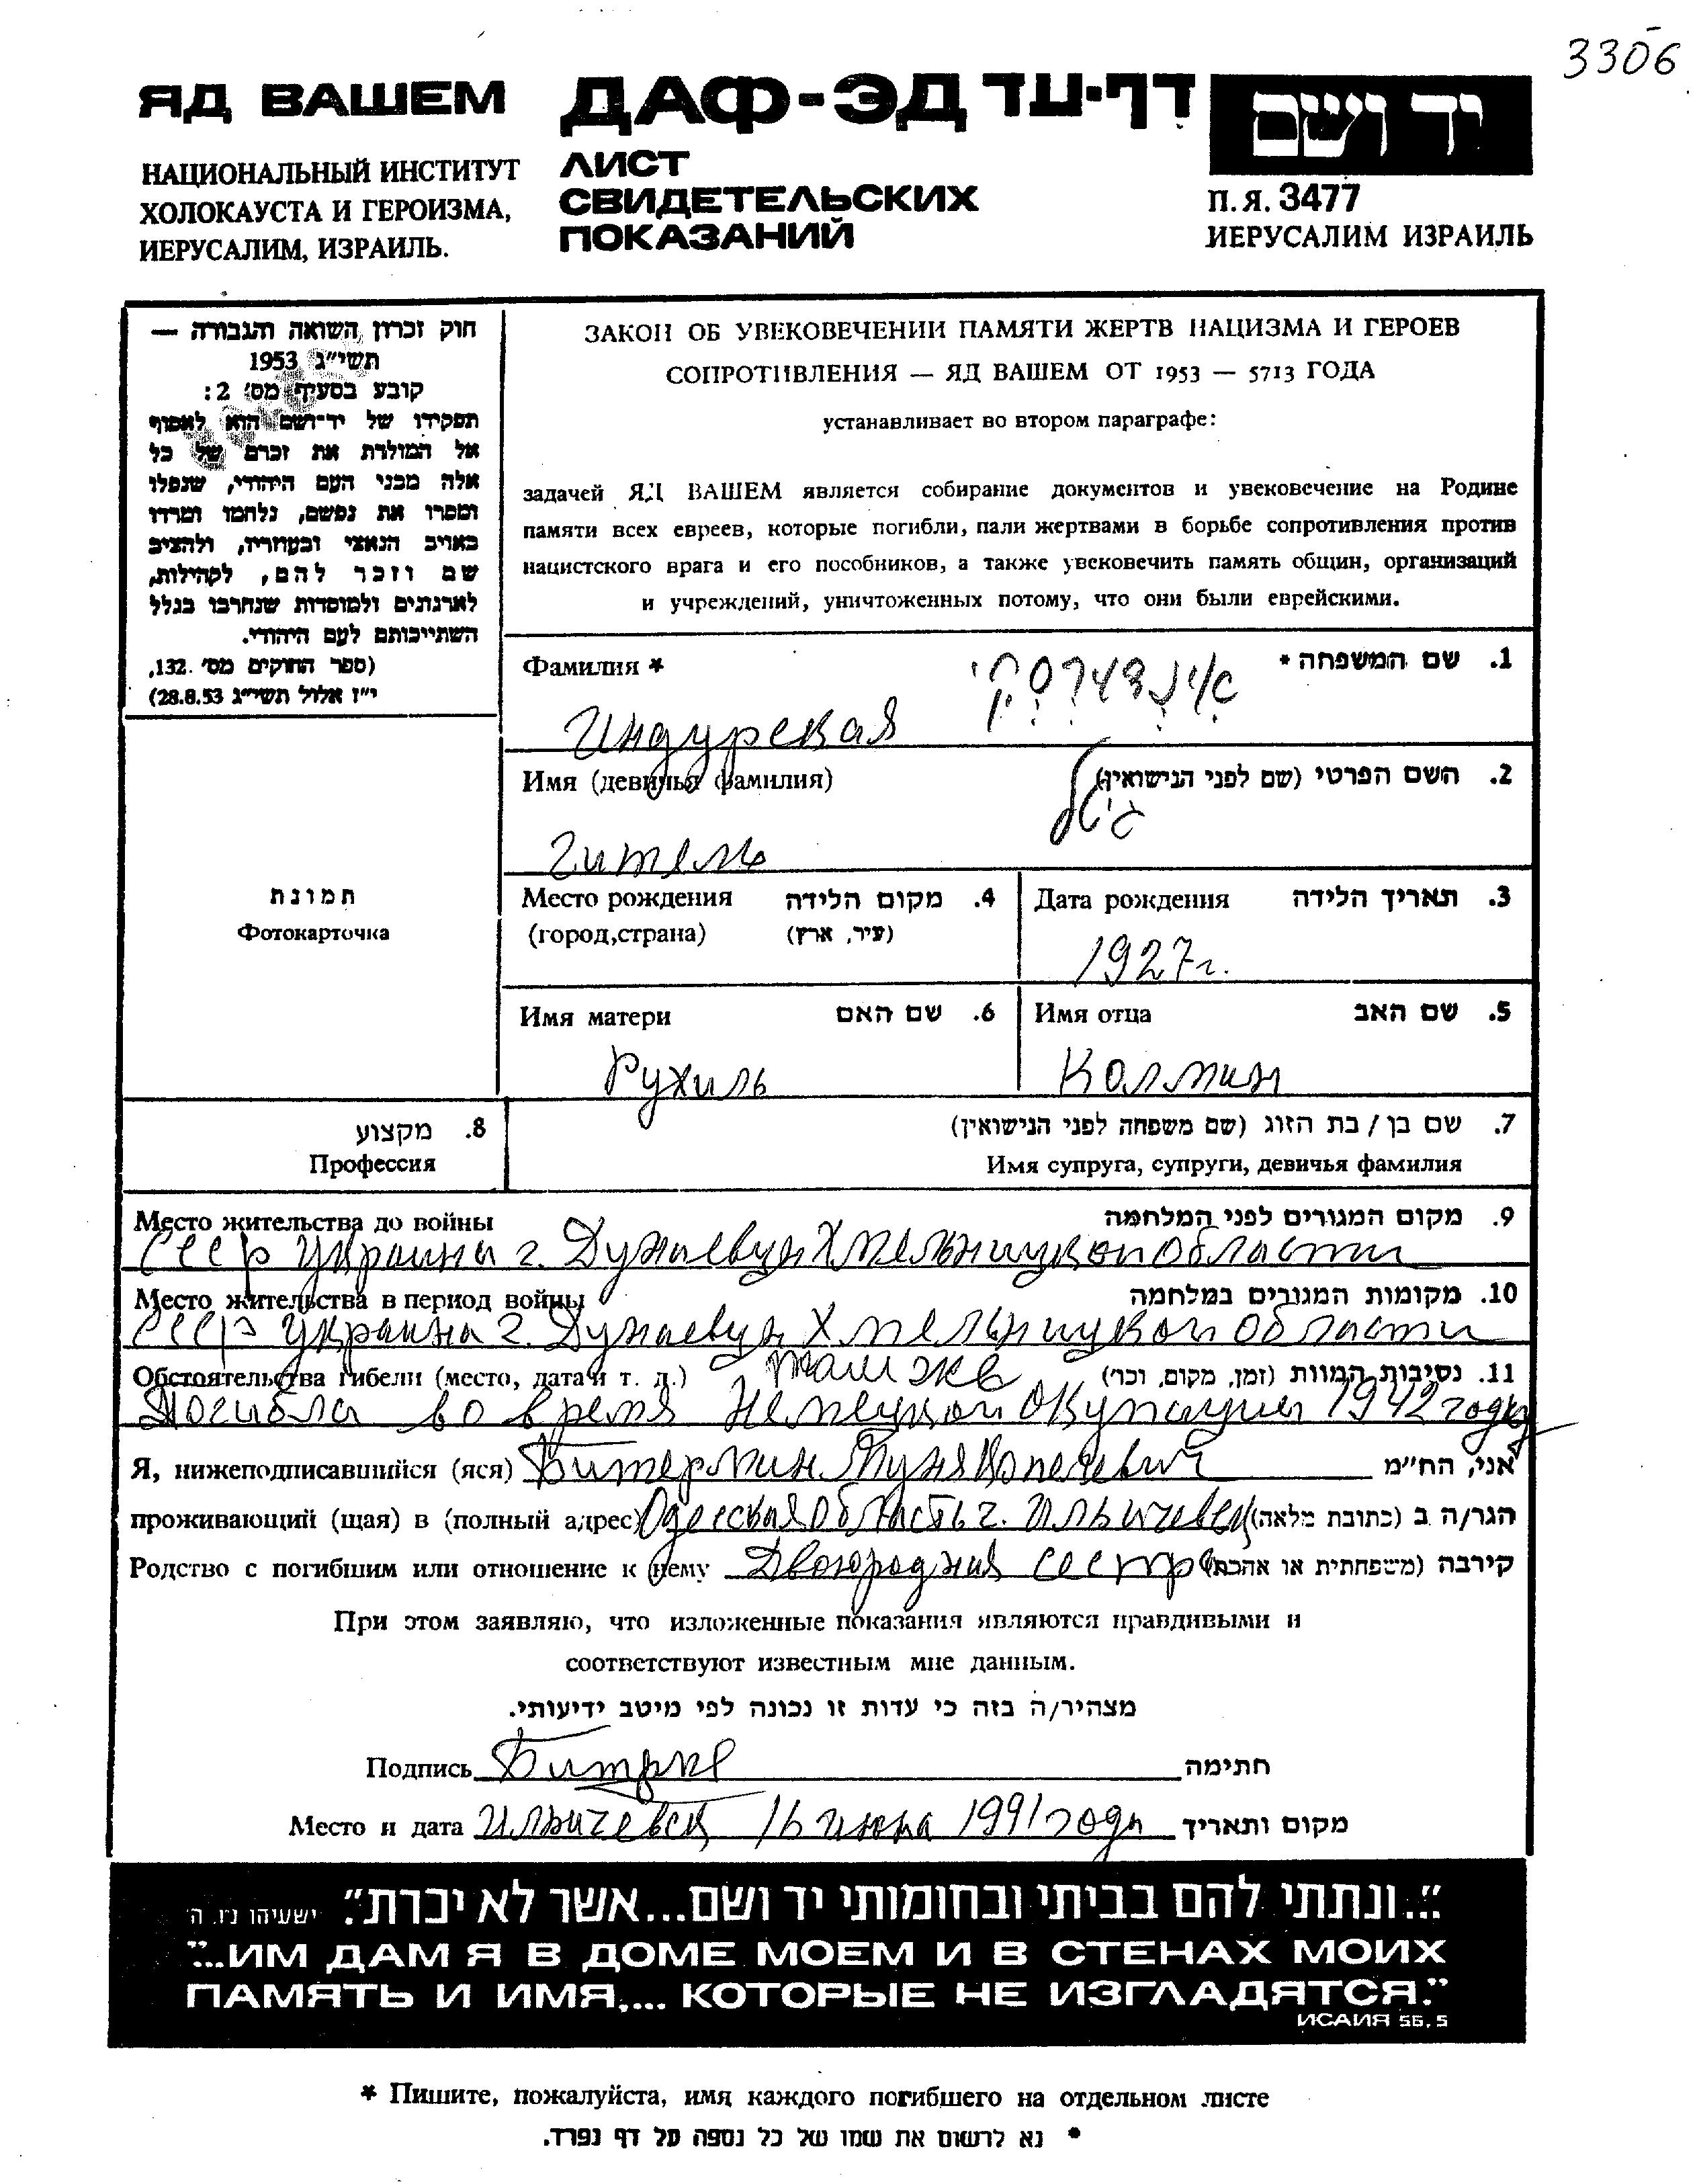 3306
ЯД ВАШЕМ
НАЦИОНАЛЬНЫЙ ИНСТИТУТ
ХОЛОКАУСТА И ГЕРОИЗМА,
ИЕРУСАЛИМ, ИЗРАИЛЬ.
ДАФ-ЭД דף-עד
ЛИСТ
СВИДЕТЕЛЬСКИХ
ПОКАЗАНИЙ
יד ושם
П.Я. 3477
ИЕРУСАЛИМ ИЗРАИЛЬ
חוק זכרון השואה והגבורה —
תשי״ג 1953
קובע בסעיף מס׳ 2:
תפקידו של יד־ושם הוא לאסוף
אל המולדת את זכרם של כל
אלה מבני העם היהודי, שנפלו
ומסרו את נפשם, נלחמו ומרדו
באויב הנאצי ובעוזריו, ולהציב
שם וזכר להם, לקהילות,
לארגונים ולמוסדות שנחרבו בגלל
השתייכותם לעם היהודי.
(ספר החוקים מס׳ 132,
י״ז אלול תשי״ג 28.8.53)
ЗАКОН ОБ УВЕКОВЕЧЕНИИ ПАМЯТИ ЖЕРТВ НАЦИЗМА И ГЕРОЕВ
СОПРОТИВЛЕНИЯ — ЯД ВАШЕМ ОТ 1953 — 5713 ГОДА
устанавливает во втором параграфе:
задачей ЯД ВАШЕМ является собирание документов и увековечение на Родине
памяти всех евреев, которые погибли, пали жертвами в борьбе сопротивления против
нацистского врага и его пособников, а также увековечить память общин, организаций
и учреждений, уничтоженных потому, что они были еврейскими.
Фамилия * 1. שם המשפחה *
Индурская
Имя (девичья фамилия) 2. השם הפרטי (שם לפני הנישואין)
גיטל
Гитель
תמונת
Фотокарточка
Место рождения 4. מקום הלידה
(город,страна) (עיר, ארץ)
Дата рождения 3. תאריך הלידה
1927г.
Имя матери 6. שם האם
Рухиль
Имя отца 5. שם האב
Колман
8. מקצוע
Профессия
7. שם בן / בת הזוג (שם משפחה לפני הנישואין)
Имя супруга, супруги, девичья фамилия
Место жительства до войны 9. מקום המגורים לפני המלחמה
СССР Украина г. Дунаевцы Хмельницкой области
Место жительства в период войны 10. מקומות המגורים במלחמה
СССР Украина г. Дунаевцы Хмельницкой области
Обстоятельства гибели (место, дата и т. д.) там же 11. נסיבות המוות (זמן, מקום, וכו׳)
Погибла во время немецкой окупации 1942 годы
Я, нижеподписавшийся (яся) Битерман Муня אני, הח״מ
проживающий (щая) в (полный адрес) Одесская область г. Ильичевск הגר/ה ב (כתובת מלאה)
Родство с погибшим или отношение к нему Двоюродная сестра קירבה (משפחתית או אחרת)
При этом заявляю, что изложенные показания являются правдивыми и
соответствуют известным мне данным.
מצהיר/ה בזה כי עדות זו נכונה לפי מיטב ידיעותי.
Подпись חתימה
Место и дата Ильичевск 16 июня 1991 года מקום ותאריך
״...ונתתי להם בביתי ובחומותי יד ושם...אשר לא יכרת״. ישעיהו נ״ו. ה׳
"...ИМ ДАМ Я В ДОМЕ МОЕМ И В СТЕНАХ МОИХ
ПАМЯТЬ И ИМЯ,... КОТОРЫЕ НЕ ИЗГЛАДЯТСЯ."
ИСАИЯ 56, 5
* Пишите, пожалуйста, имя каждого погибшего на отдельном листе
* נא לרשום את שמו של כל נספה על דף נפרד.